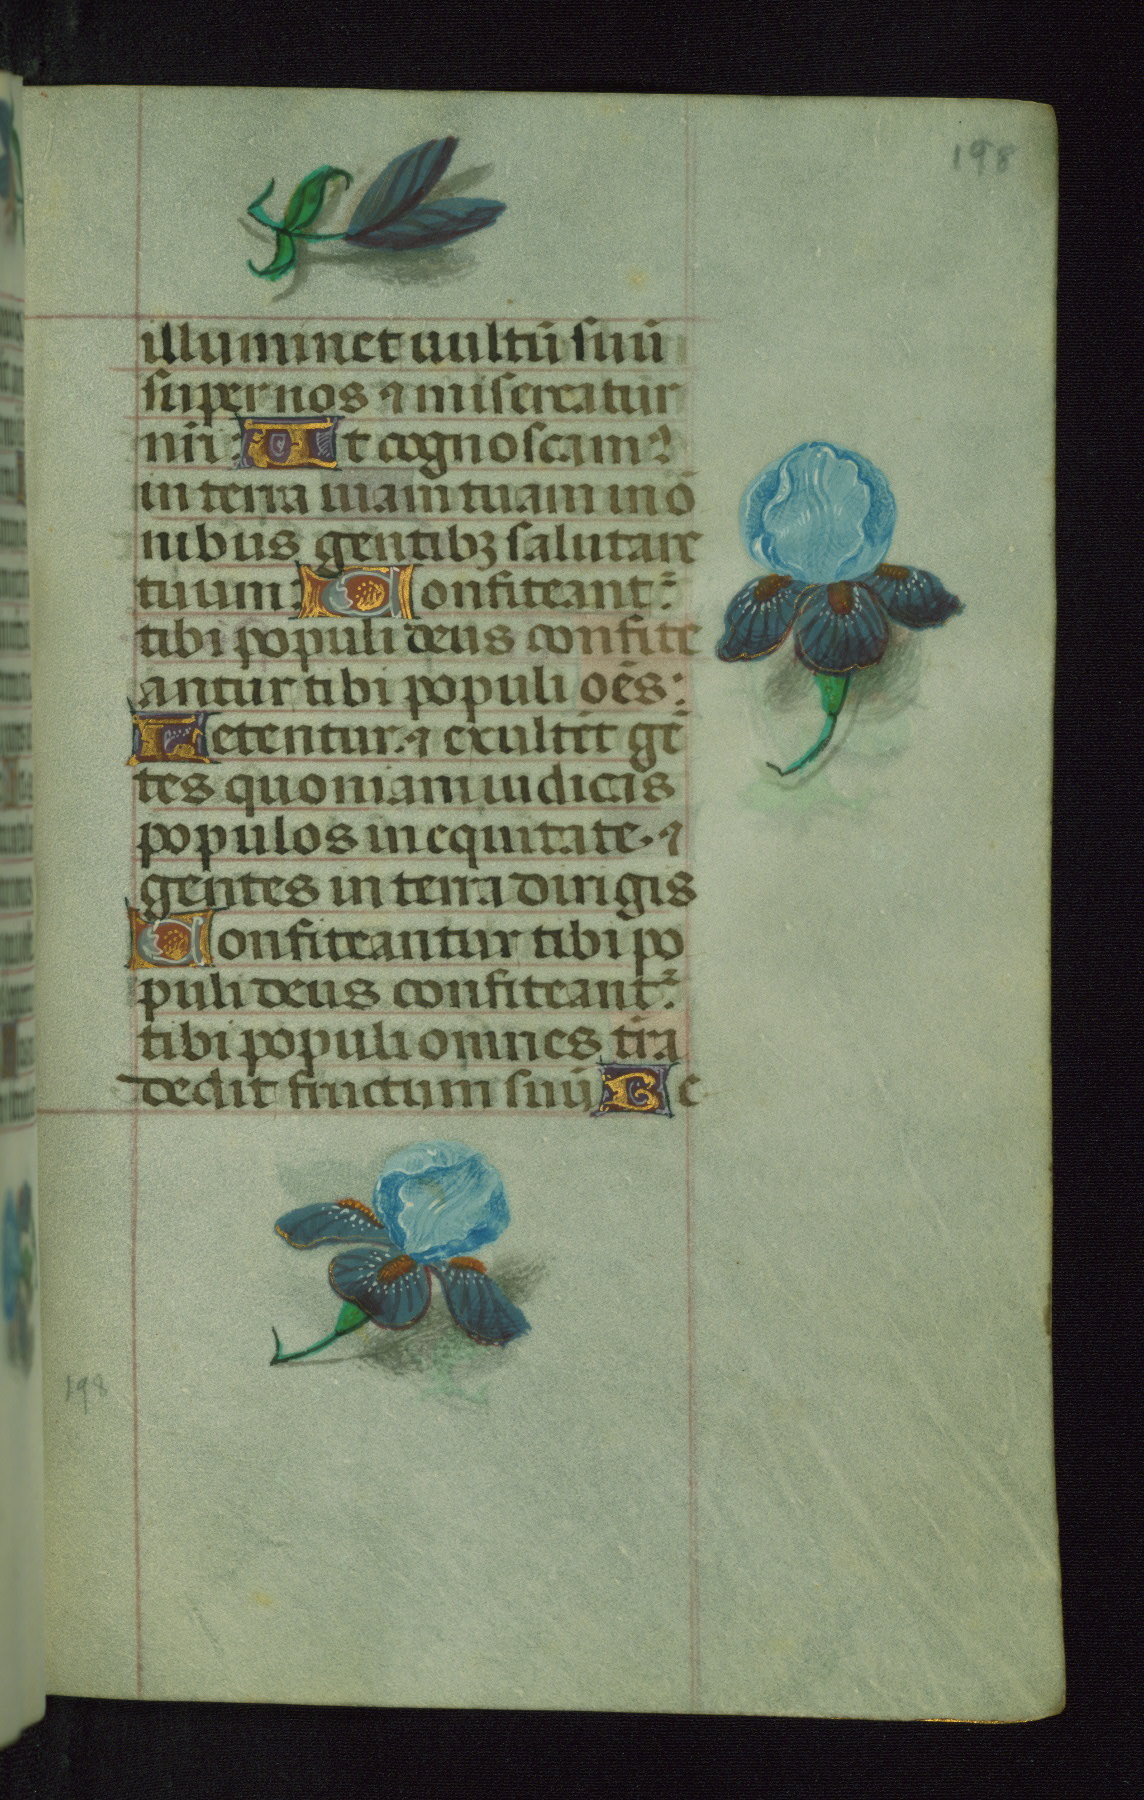 198
illuminet uultū suū
super nos ⁊ misereatur
nr̄i : Ut cognoscam⁹
in terra uiam tuam in ō
nibus gentibꝫ salutare
tuum : Confiteant᷑:
tibi populi deus confite
antur tibi populi oēs :
Letentur. ⁊ exultēt gē
tes quoniam iudicas
populos in equitate. ⁊
gentes in terra dirigis
Confiteantur tibi po
puli deus confiteant᷑:
tibi populi omnes tr̄a
dedit fructum suū Be
198